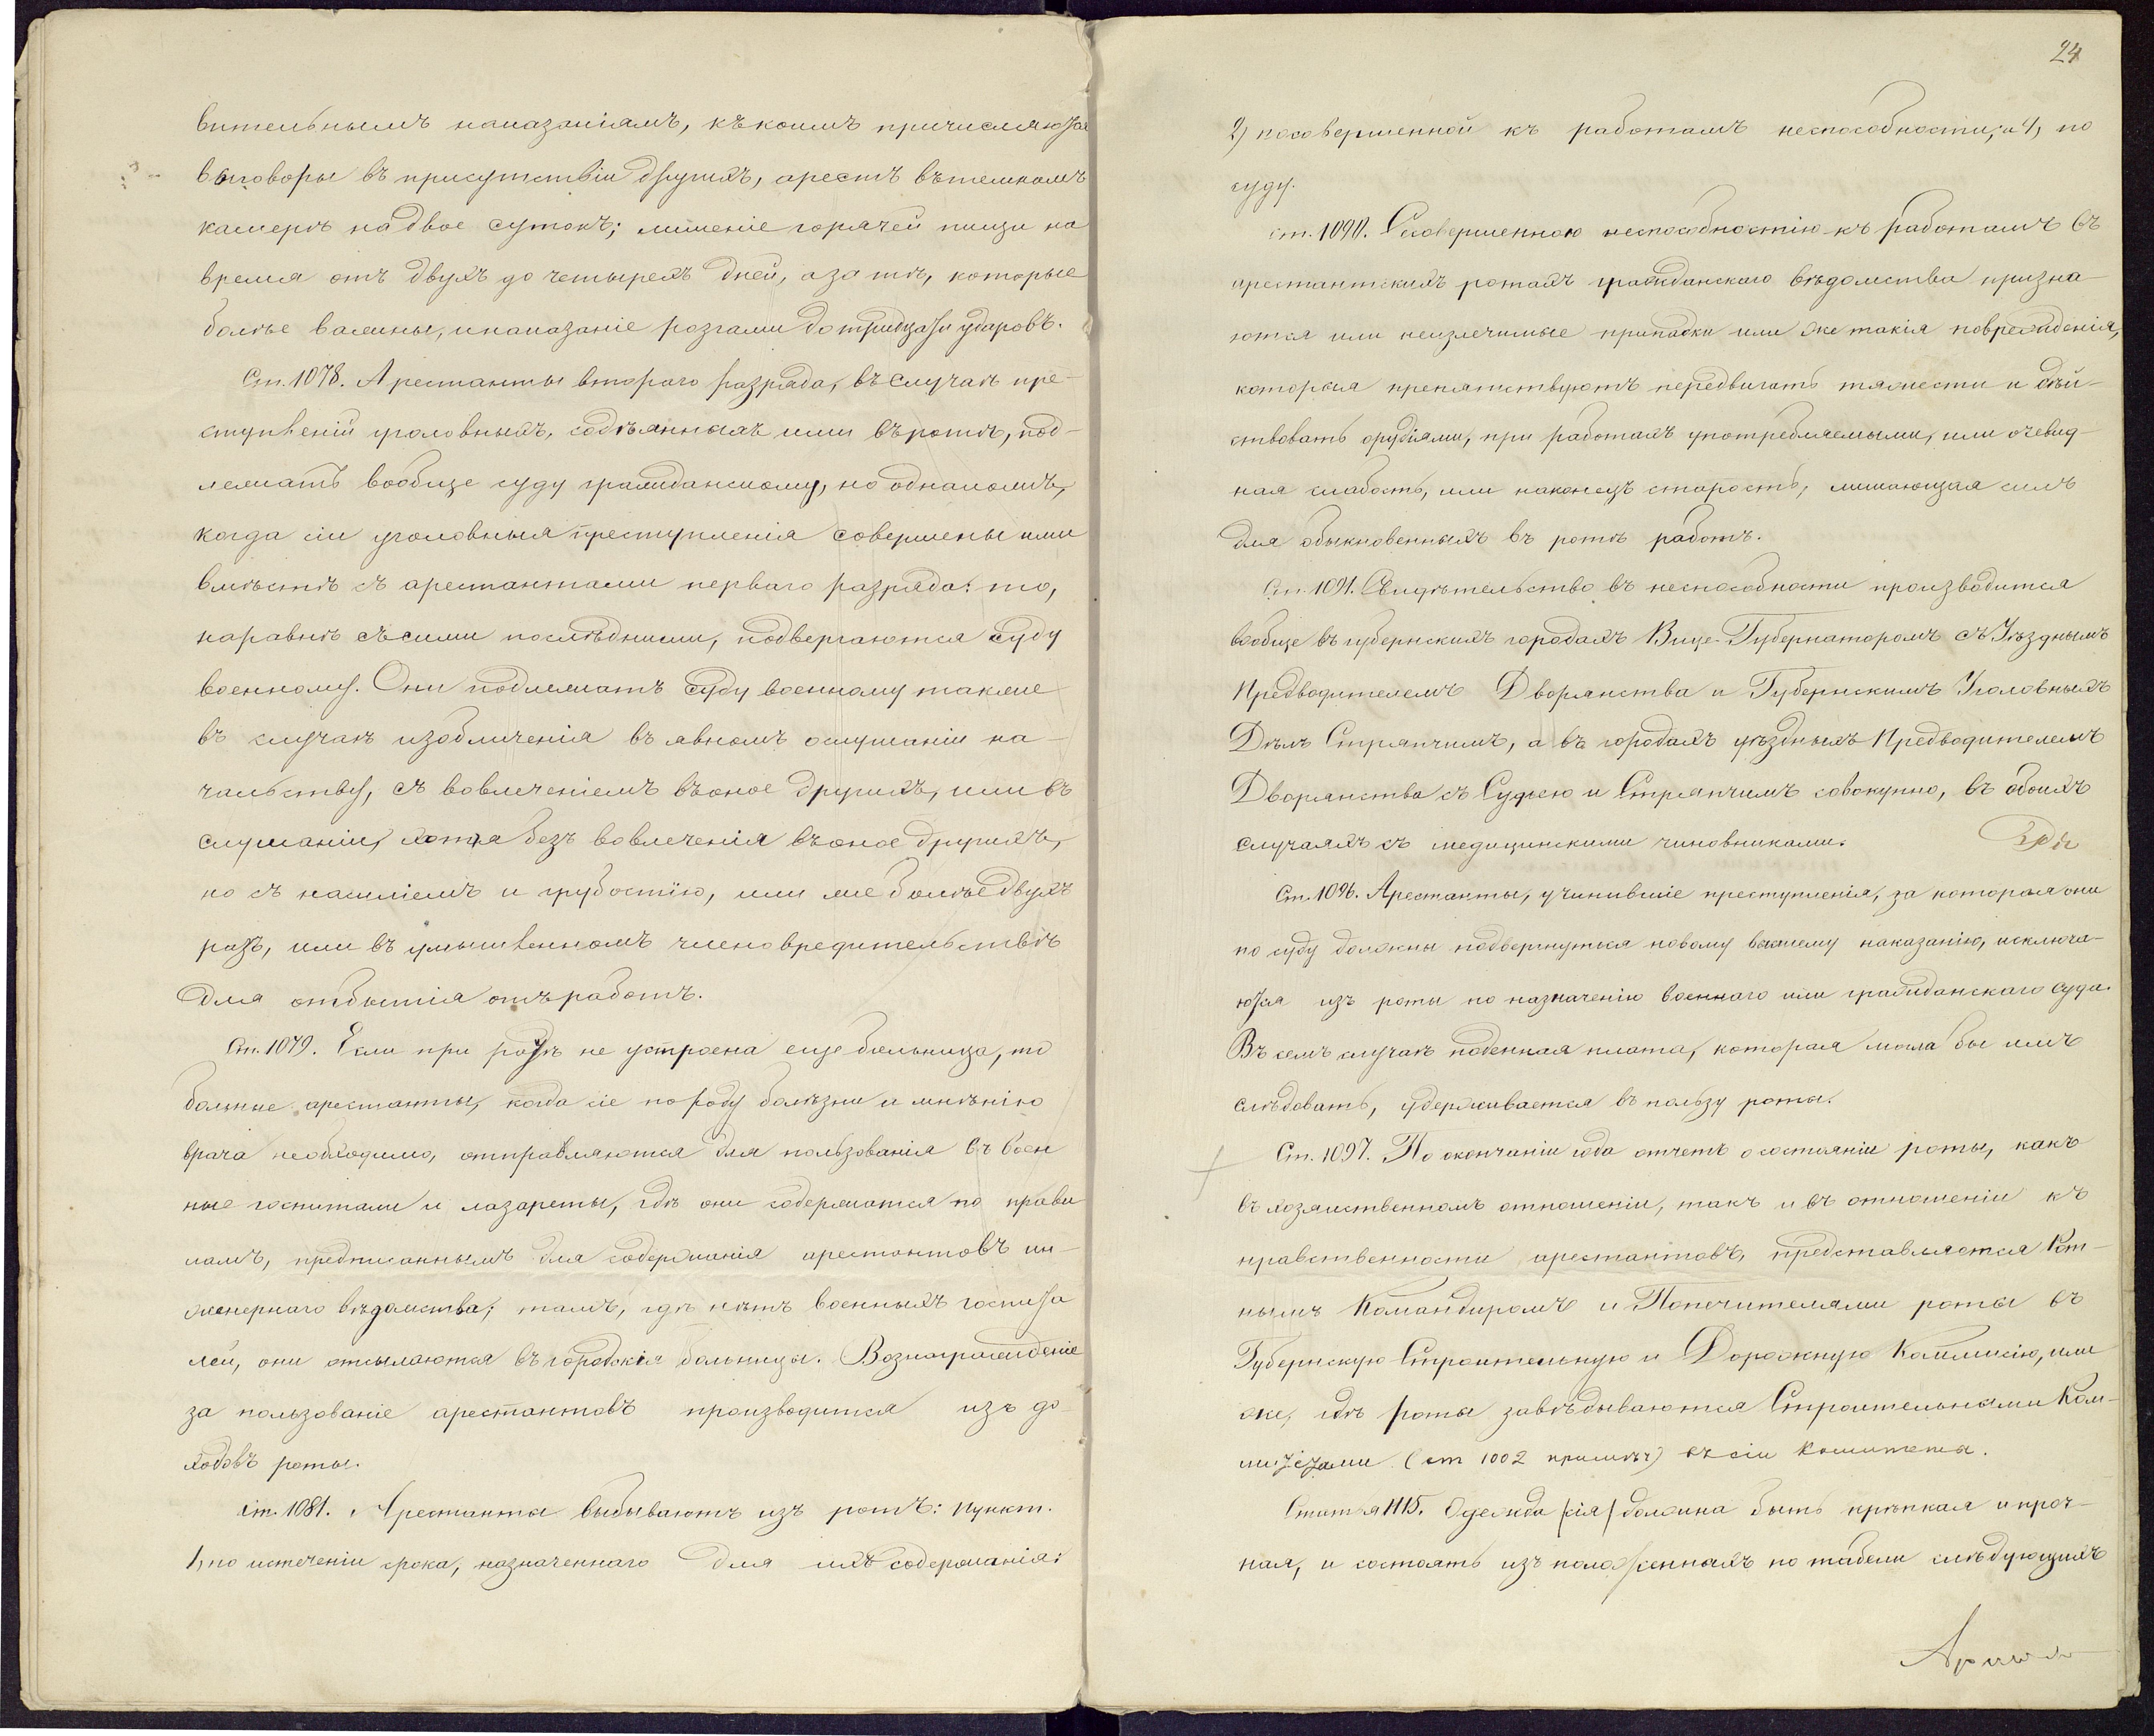 вительнымъ наказаніямъ, къ коимъ причисляются
выговоры въ присутствіи другихъ, арестъ въ темномъ
камерѣ на двое сутокъ; лишеніе горячей пищи на
время отъ двухъ до четырехъ дней, а за тѣ, которые
болѣе важны, и наказаніе розгами до тридцати ударовъ.
Ст. 1078. Арестанты втораго разряда, въ случаѣ пре-
ступленій уголовныхъ, содѣянныхъ ими въ ротѣ, под-
лежатъ вообще суду гражданскому, но однакожъ,
когда сіи уголовныя преступленія совершены ими
вмѣстѣ съ арестантами перваго разряда: то,
наравнѣ съ сими послѣдними, подвергаются суду
военному. Они подлежатъ суду военному также
въ случаѣ изобличенія въ явномъ ослушаніи на-
чальству, съ вовлеченіемъ въ оное другихъ, или въ
слушаніи, хотя безъ вовлеченія въ оное другихъ,
но съ насиліемъ и грубостію, или же болѣе двухъ
разъ, или въ умышленномъ членовредительствѣ
для отбытія отъ работъ.
Ст. 1079. Если при ротѣ не устроена еще больница, то
больные арестанты, когда сіе по роду болѣзни и мнѣнію
врача необходимо, отправляются для пользованія въ воен
ные госпитали и лазареты, гдѣ они содержатся по прави
ламъ, предписаннымъ для содержанія арестантовъ ин-
женернаго вѣдомства; тамъ, гдѣ нѣтъ военныхъ госпита
лей, они отсылаются въ городскія больницы. Вознагражденіе
за пользованіе арестантовъ производится изъ до-
ходовъ роты.
Ст. 1081. Арестанты выбываютъ изъ ротъ: пункт.
1, по истеченіи срока, назначеннаго для ихъ содержанія:
24
2) по совершенной къ работамъ неспособности; и 4, по
суду.
ст. 1090. Совершенною неспособностію къ работамъ въ
арестантскихъ ротахъ гражданскаго вѣдомства призна-
ются или неизлечимые припадки или же такія поврежденія,
которыя препятствуютъ передвигать тяжести и дѣй-
ствовать орудіями, при работахъ употребляемыми, или очевид-
ная слабость, или наконецъ старость, лишающая силъ
для обыкновенныхъ въ ротѣ работъ.
Ст. 1091. Свидѣтельство въ неспособности производится
вообще въ губернскихъ городахъ Вице-Губернаторомъ съ Уѣзднымъ
Предводителемъ Дворянства и Губернскимъ Уголовныхъ
Дѣлъ Стряпчимъ, а въ городахъ уѣздныхъ Предводителемъ
Дворянства съ Судьею и Стряпчимъ совокупно, въ обоихъ
случаяхъ съ медицинскими чиновниками.
Ст. 1096. Арестанты, учинившіе преступленія, за которыя они
по суду должны подвергнуться новому высшему наказанію, исключа-
ются изъ роты по назначенію военнаго или гражданскаго суда.
Въ семъ случаѣ поденная плата, которая могла бы имъ
слѣдовать, удерживается въ пользу роты.
Ст. 1097. По окончаніи года отчетъ о состояніи роты, какъ
въ хозяйственномъ отношеніи, такъ и въ отношеніи къ
нравственности арестантовъ, представляется Рот-
нымъ Командиромъ и Попечителями роты въ
Губернскую Строительную и Дорожную Коммисію, или
же, гдѣ роты завѣдываются Строительными Ком-
ми (ст 1002 примѣч) въ сіи Комитеты.
Статья 1115. Одежда (сія) должна быть крѣпкая и проч-
ная, и состоять изъ положенныхъ по табели слѣдующихъ